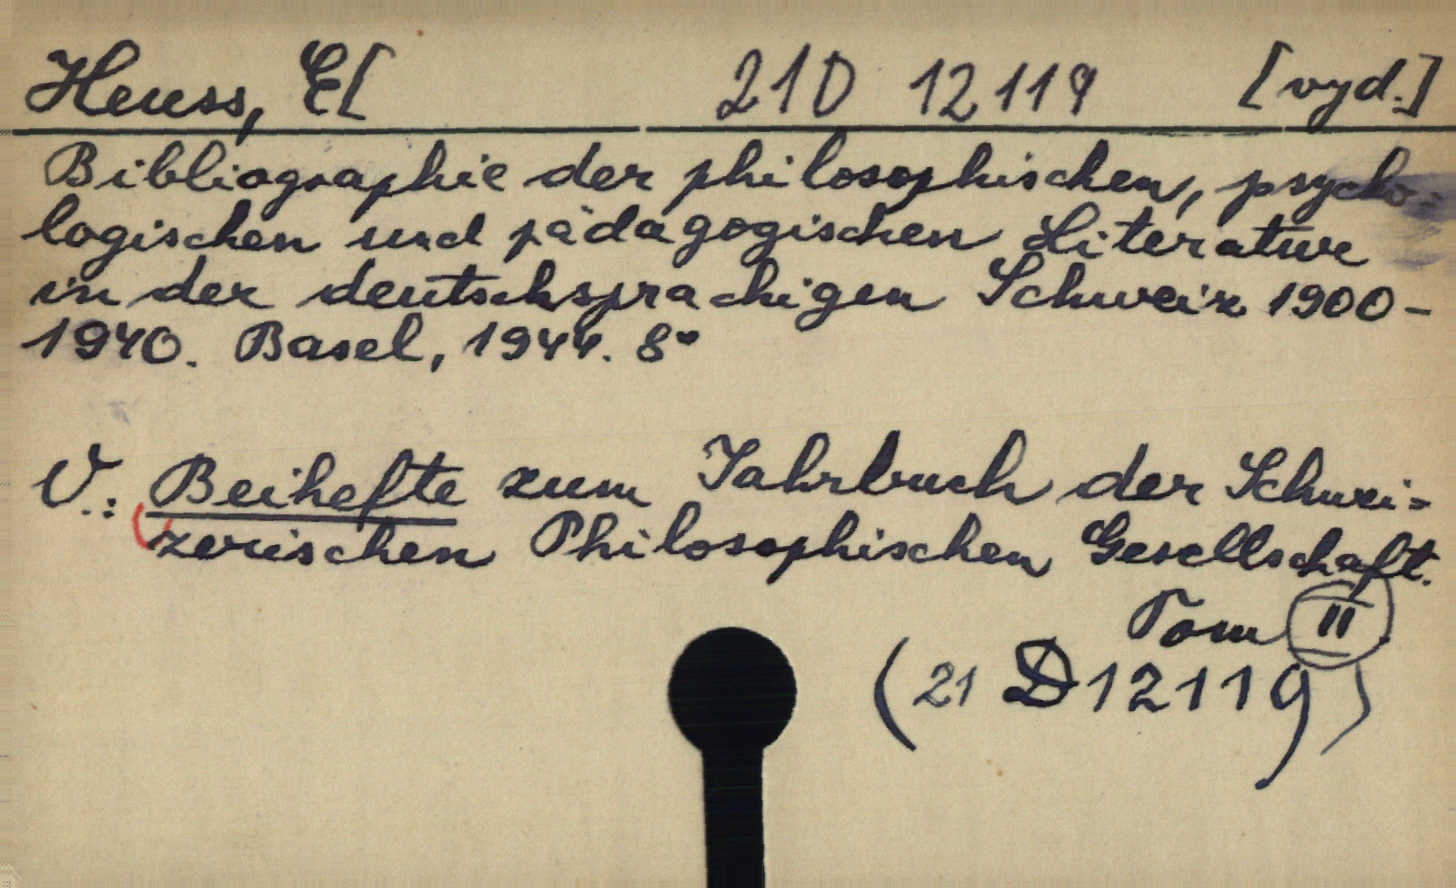 Heuss, E[ 21D 12119 [vyd.]
Bibliographie der philosophischen, psycho-
logischen und pädagogischen Literatur
in der deutschsprachigen Schweiz 1900-
1940. Basel, 1944. 8°
V.: Beihefte zum Jahrbuch der Schwei-
zerischen Philosophischen Gesellschaft.
Tom II
(21 D 12119)